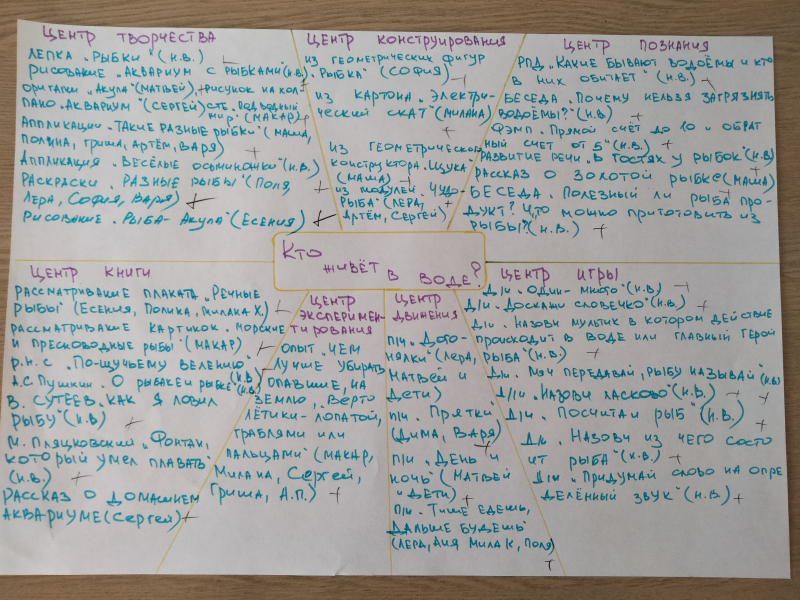 ЦЕНТР ТВОРЧЕСТВА
ЛЕПКА „РЫБКИ" (Н.В.)
РИСОВАНИЕ „АКВАРИУМ С РЫБКАМИ" (Н.В.)
ОРИГАМИ „АКУЛА" (МАТВЕЙ), РИСУНОК НА КОЛ
ПАКО „АКВАРИУМ" (СЕРГЕЙ)
ПОДВОДНЫЙ
МИР" (МАКАР)
АППЛИКАЦИИ „ТАКИЕ РАЗНЫЕ РЫБКИ" (МАША,
ПОЛИНА, ГРИША, АРТЁМ, ВАРЯ) +
АППЛИКАЦИЯ „ВЕСЁЛЫЕ ОСЬМИНОЖКИ" (Н.В.)
РАСКРАСКИ „РАЗНЫЕ РЫБЫ" (ПОЛЯ, +
ЛЕРА, СОФИЯ, ВАРЯ) +
РИСОВАНИЕ „РЫБА-АКУЛА" (ЕСЕНИЯ) +
ЦЕНТР КОНСТРУИРОВАНИЯ
ИЗ ГЕОМЕТРИЧЕСКИХ ФИГУР
„РЫБКА" (СОФИЯ) +
ИЗ КАРТОНА „ЭЛЕКТРИ-
ЧЕСКИЙ СКАТ" (МИЛАНА)
+
ИЗ ГЕОМЕТРИЧЕСКОГО
КОНСТРУКТОРА „ЩУКА"
(МАША) +
ИЗ МОДУЛЕЙ „ЧУДО-
РЫБА" (ЛЕРА, +
АРТЁМ, СЕРГЕЙ)
ЦЕНТР ПОЗНАНИЯ
РПД „КАКИЕ БЫВАЮТ ВОДОЁМЫ И КТО
В НИХ ОБИТАЕТ" (Н.В.) +
БЕСЕДА „ПОЧЕМУ НЕЛЬЗЯ ЗАГРЯЗНЯТЬ
ВОДОЁМЫ?" (Н.В) +
ФЭМП „ПРЯМОЙ СЧЁТ ДО 10 И ОБРАТ
НЫЙ СЧЕТ ОТ 5" (Н.В.) +
РАЗВИТИЕ РЕЧИ „В ГОСТЯХ У РЫБОК" (Н.В)
РАССКАЗ О ЗОЛОТОЙ РЫБКЕ (МАША) +
БЕСЕДА „ПОЛЕЗНЫЙ ЛИ РЫБА ПРО-
ДУКТ? ЧТО МОЖНО ПРИГОТОВИТЬ ИЗ
РЫБЫ?" (Н.В.) +
КТО
ЖИВЁТ В ВОДЕ?
ЦЕНТР КНИГИ
РАССМАТРИВАНИЕ ПЛАКАТА „РЕЧНЫЕ
РЫБЫ" (ЕСЕНИЯ, ПОЛИНА, МИЛАНА Х.)
РАССМАТРИВАНИЕ КАРТИНОК „МОРСКИЕ
И ПРЕСНОВОДНЫЕ РЫБЫ" (МАКАР)
Р.Н.С „ПО ЩУЧЬЕМУ ВЕЛЕНИЮ" (Н.В)
А.С. ПУШКИН „О РЫБАКЕ И РЫБКЕ" (Н.В)
В. СУТЕЕВ „КАК Я ЛОВИЛ
РЫБУ" (Н.В) +
М. ПЛЯЦКОВСКИЙ „ФОНТАН,
КОТОРЫЙ УМЕЛ ПЛАВАТЬ"
(Н.В.) +
РАССКАЗ О ДОМАШНЕМ
АКВАРИУМЕ (СЕРГЕЙ) +
ЦЕНТР
ЭКСПЕРИМЕН-
ТИРОВАНИЯ
ОПЫТ „ЧЕМ
ЛУЧШЕ УБИРАТЬ
ОПАВШИЕ, НА
ЗЕМЛЮ, ВЕРТО
ЛЁТИКИ-ЛОПАТОЙ,
ГРАБЛЯМИ ИЛИ
ПАЛЬЦАМИ" (МАКАР,
МИЛАНА, СЕРГЕЙ,
ГРИША, А.П.) +
ЦЕНТР
ДВИЖЕНИЯ
П/И „ДОГО-
НЯЛКИ" (ЛЕРА,
МАТВЕЙ И
ДЕТИ)
П/И „ПРЯТКИ"
(ДИМА, ВАРЯ)
+
П/И „ДЕНЬ И
НОЧЬ" (МАТВЕЙ
И ДЕТИ) +
П/И „ТИШЕ ЕДЕШЬ,
ДАЛЬШЕ БУДЕШЬ"
(ЛЕРА, МИЛА К, ПОЛЯ)
+
ЦЕНТР ИГРЫ
Д/И „ОДИН-МНОГО" (Н.В) +
Д/И „ДОСКАЖИ СЛОВЕЧКО" (Н.В.) +
Д/И „НАЗОВИ МУЛЬТИК В КОТОРОМ ДЕЙСТВИЕ
ПРОИСХОДИТ В ВОДЕ ИЛИ ГЛАВНЫЙ ГЕРОЙ
РЫБА" (Н.В.) +
Д/И „МЯЧ ПЕРЕДАВАЙ, РЫБУ НАЗЫВАЙ" (Н.В)
Д/И „НАЗОВИ ЛАСКОВО" (Н.В.) +
Д/И „ПОСЧИТАЙ РЫБ" (Н.В.) +
Д/И „НАЗОВИ ИЗ ЧЕГО СОСТО
ИТ РЫБА" (Н.В.) +
Д/И „ПРИДУМАЙ СЛОВО НА ОПРЕ
ДЕЛЁННЫЙ ЗВУК" (Н.В.) +